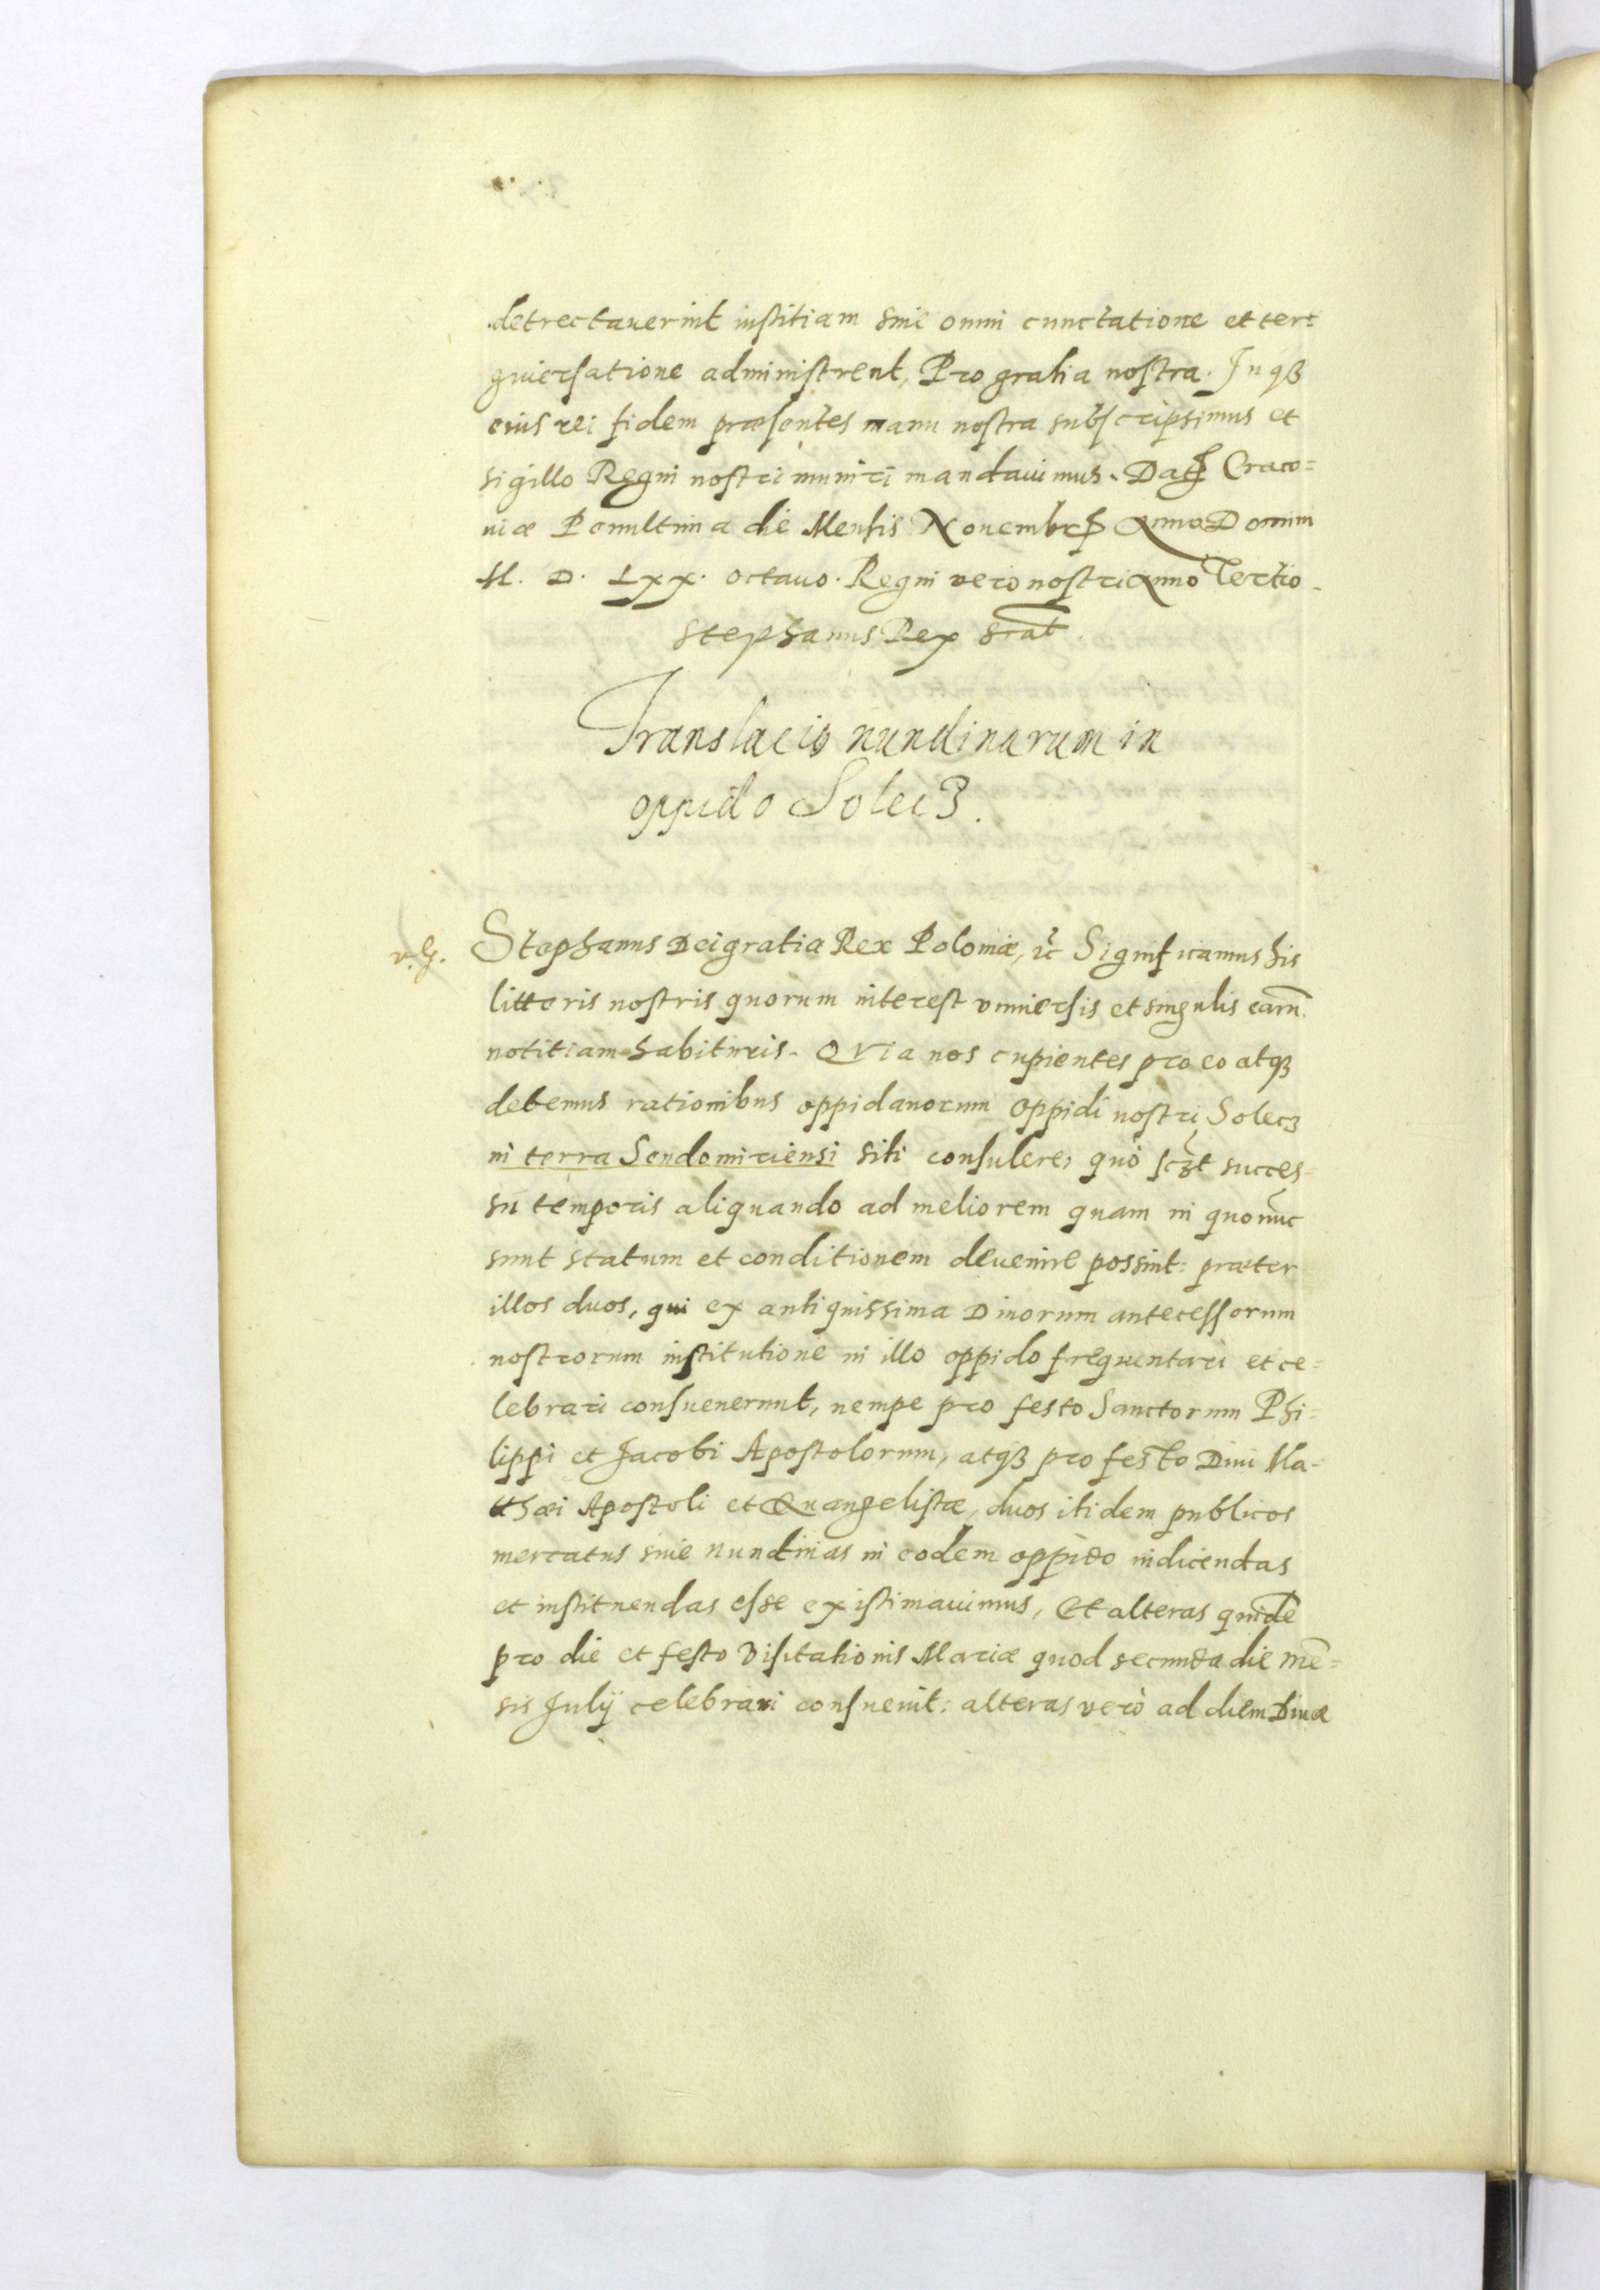 detrectauerint iustitiam sine omni cunctatione et ter=
guiersatione administrent, Pro gratia nostra. Inqȝ
eius rei fidem præsentes manu nostra subscripsimus et
sigillo Regni nostri muniri mandauimus. Datꝭ Craco=
uiæ Penultima die Mensis Nouembrꝭ Anno Domini
M. D. Lxx. octauo. Regni vero nostri anno Tertio.
Stephanus Rex scãt.
Translacio nundinarum in
oppido Solecz.
v. G.
Stephanus Dei gratia Rex Poloniæ, ꝛc̃ Significamus his
litteris nostris quorum interest vniuersis et singulis earũ
notitiam habituris. Qvia nos cupientes pro eo atqȝ
debemus rationibus oppidanorum oppidi nostri Solecz
in terra Sendomiriensi siti consulere, quò sczt̃ succes=
su temporis aliquando ad meliorem quam in quo nũc
sunt statum et conditionem deuenire possint: præter
illos duos, qui ex antiquissima Diuorum antecessorum
nostrorum institutione in illo oppido frequentari et ce=
lebrari consueuerunt, nempe pro festo Sanctorum Phi=
lippi et Jacobi Apostolorum, atqȝ pro festo Diui Ma-
tthæi Apostoli et Euangelistæ, duos itidem publicos
mercatus siue nundinas in eodem oppido indicendas
et instituendas esse existimauimus, Et alteras quidẽ
pro die et festo Visitationis Mariæ quod secunda die mẽ=
sis Julij celebrari consueuit: alteras verò ad diem Diuæ